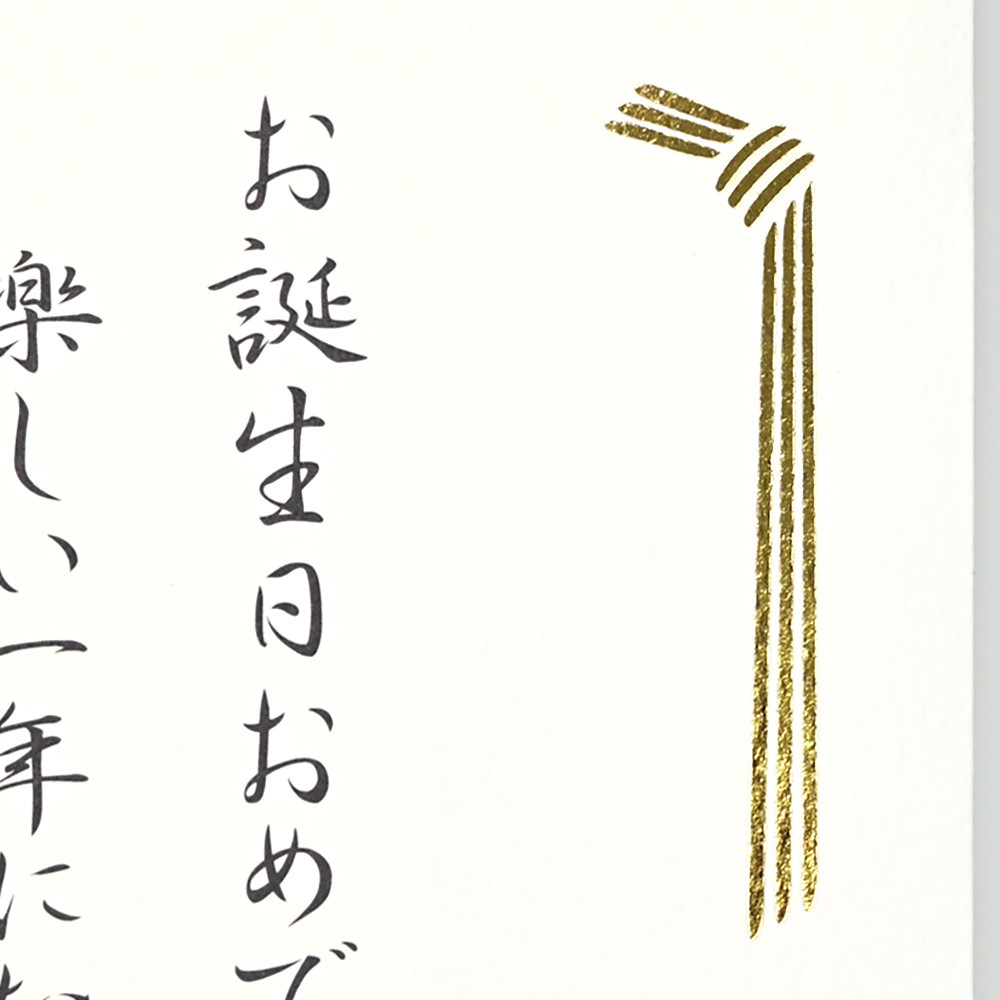 お誕生日おめで
楽しい一年に